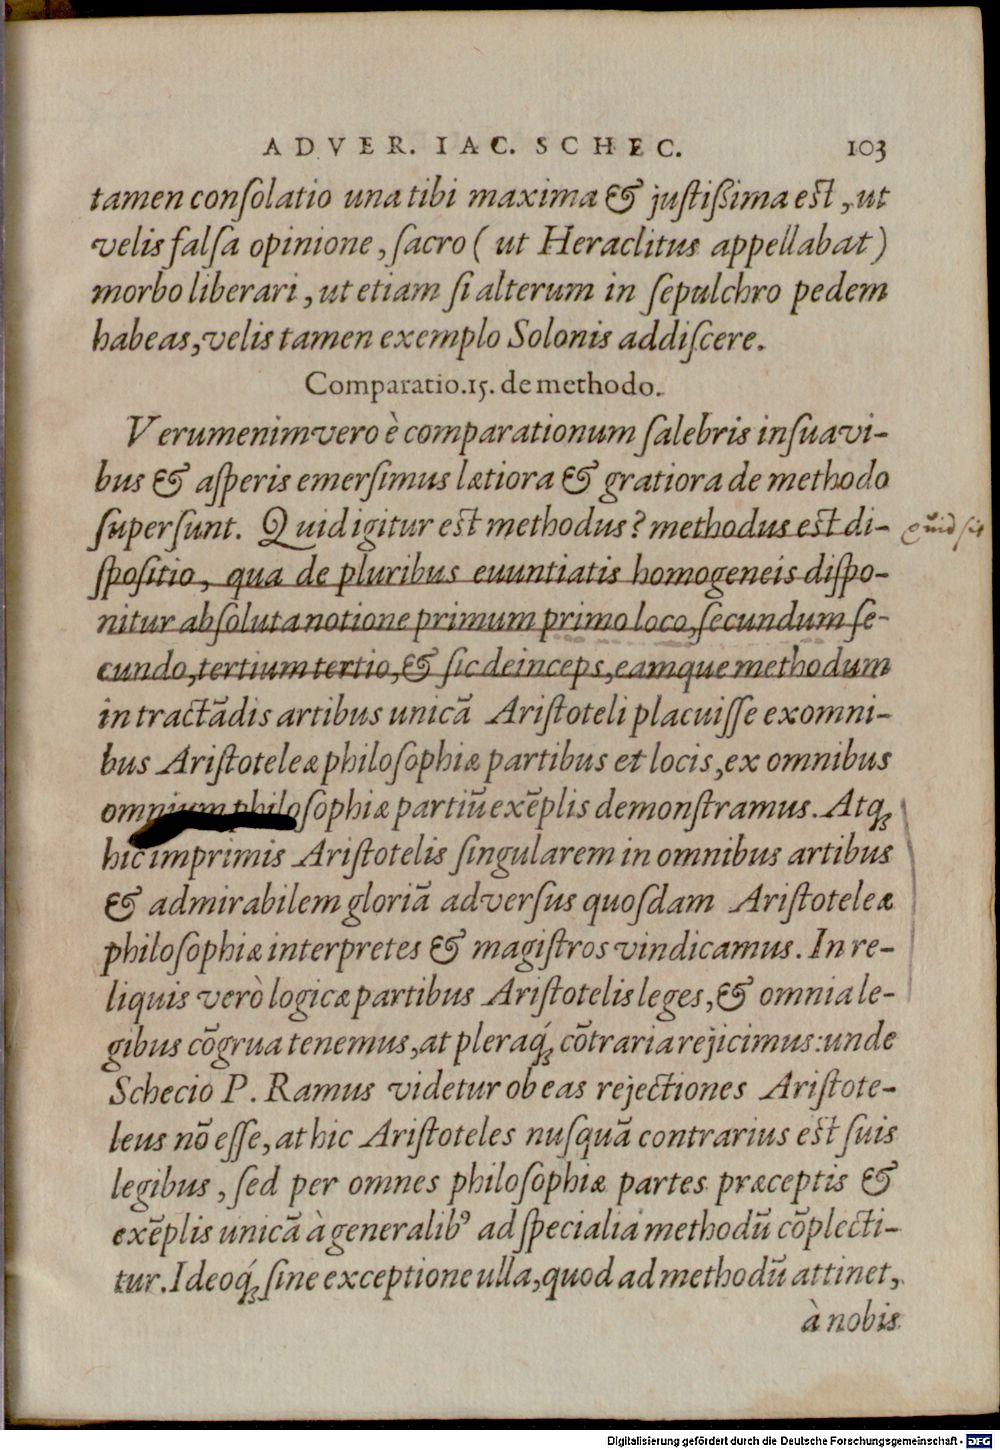 ADVER. IAC. SCHEC. 103
tamen conſolatio una tibi maxima & juſtiſſima eſt, ut
velis falſa opinione, ſacro ( ut Heraclitus appellabat )
morbo liberari, ut etiam ſi alterum in ſepulchro pedem
habeas, velis tamen exemplo Solonis addiſcere.
Comparatio.15. de methodo.
Verumenimvero è comparationum ſalebris inſuavi-
bus & aſperis emerſimus lætiora & gratiora de methodo
ſuperſunt. Quid igitur eſt methodus? methodus eſt di-
quid sit
ſpoſitio, qua de pluribus euuntiatis homogeneis diſpo-
nitur abſoluta notione primum primo loco, ſecundum ſe-
cundo, tertium tertio, & ſic deinceps, eamque methodum
in tractādis artibus unicā Ariſtoteli placuiſſe ex omni-
bus Ariſtoteleæ philoſophiæ partibus et locis, ex omnibus
omnium philoſophiæ partiū exēplis demonſtramus. Atq́ꝫ
hic imprimis Ariſtotelis ſingularem in omnibus artibus
& admirabilem gloriā adverſus quoſdam Ariſtoteleæ
philoſophiæ interpretes & magiſtros vindicamus. In re-
liquis verò logicæ partibus Ariſtotelis leges, & omnia le-
gibus cōgrua tenemus, at pleraq́ꝫ cōtraria rejicimus: unde
Schecio P. Ramus videtur ob eas rejectiones Ariſtote-
leus nō eſſe, at hic Ariſtoteles nuſquā contrarius eſt ſuis
legibus, ſed per omnes philoſophiæ partes præceptis &
exēplis unicā à generalibꝰ ad ſpecialia methodū cōplecti-
tur. Ideoq́ꝫ ſine exceptione ulla, quod ad methodū attinet,
à nobis
Digitalisierung gefördert durch die Deutsche Forschungsgemeinschaft - DFG